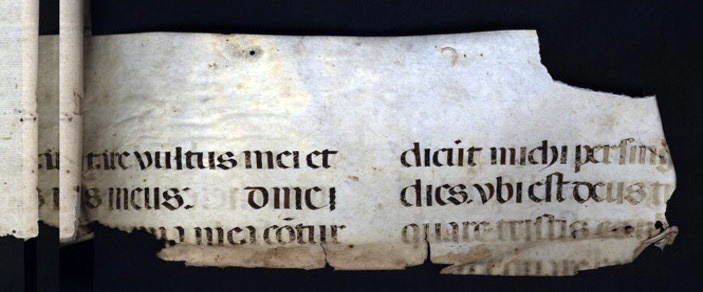 tare vultus mei et
s meus: d me i
ma mea cōtur
dicūt michi per sing
dies. vbi est deus t
quare tristis
quare